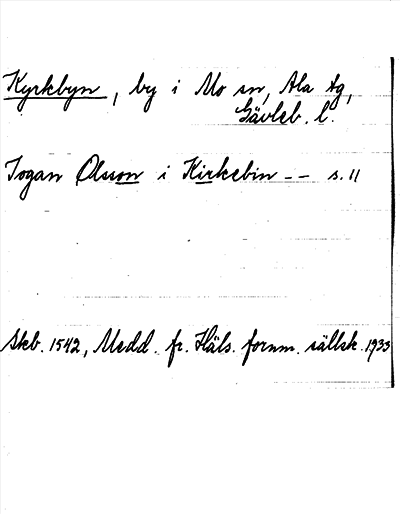 Kyrkbyn, by i Mo sn, Ala tg,
Gävleb. l.
Jogan Olsson i Kirkebin -- s. 11
Skb. 1542, Medd. fr. Häls. fornm. sällsk. 1933